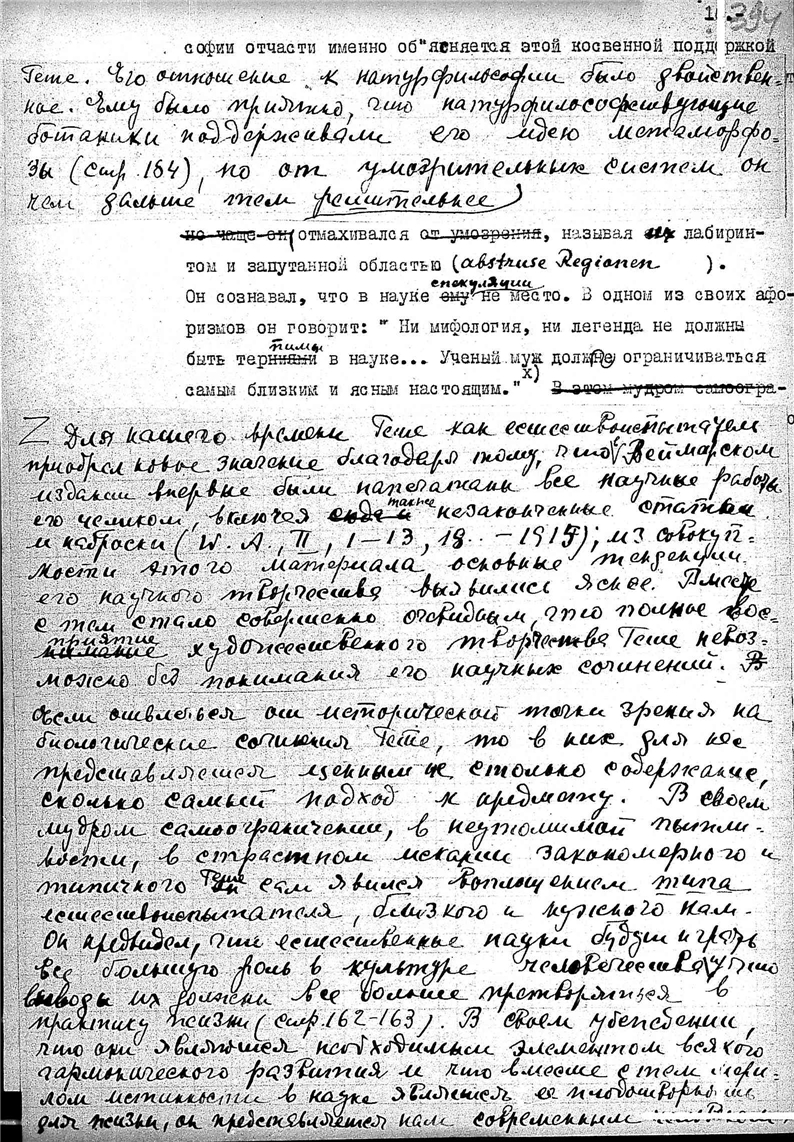 394
софии отчасти именно об"ясняется этой косвенной поддержкой
Гете. Его отношение к натурфилософии было двойствен-
ное. Ему было приятно, что натурфилософствующие
ботаники поддерживали его идею метаморфо-
зы (стр. 184), но от умозрительных систем он
чем дальше тем решительнее
но чаще он отмахивался от умозрения, называя их лабирин-
том и запутанной областью (abstruse Regionen ).
спекуляции
Он сознавал, что в науке ему не место. В одном из своих афо-
ризмов он говорит: " Ни мифология, ни легенда не должны
быть терпимы в науке... Ученый муж должен ограничиваться
х)
самым близким и ясным настоящим." В этом мудром самоогра-
Для нашего времени Гете как естествоиспытатель
приобрел новое значение благодаря тому, что в Веймарском
издании впервые были напечатаны все научные работы
его целиком, включая также незаконченные статьи
и наброски (W. A., II, 1–13, 18.. –1915); из совокуп-
ности этого материала основные тенденции
его научного творчества выявились яснее. Вместе
с тем стало совершенно очевидным, что полное вос-
приятие
нимание художественного творчества Гете невоз-
можно без понимания его научных сочинений. В
Если отвлечься от исторической точки зрения на
биологические сочинения Гете, то в них для нас
представляется ценным не столько содержание,
сколько самый подход к предмету. В своем
мудром самоограничении, в неутолимой пытли-
вости, в страстном искании закономерного и
типичного Гете сам явился воплощением типа
естествоиспытателя, близкого и нужного нам.
Он предвидел, что естественные науки будут играть
все большую роль в культуре человечества, что
выводы их должны все больше претворяться в
практику жизни (стр. 162-163). В своем убеждении,
что они являются необходимым элементом всякого
гармонического развития и что вместе с тем мери-
лом истинности в науке является ее плодотворность
для жизни, он представляется нам современным